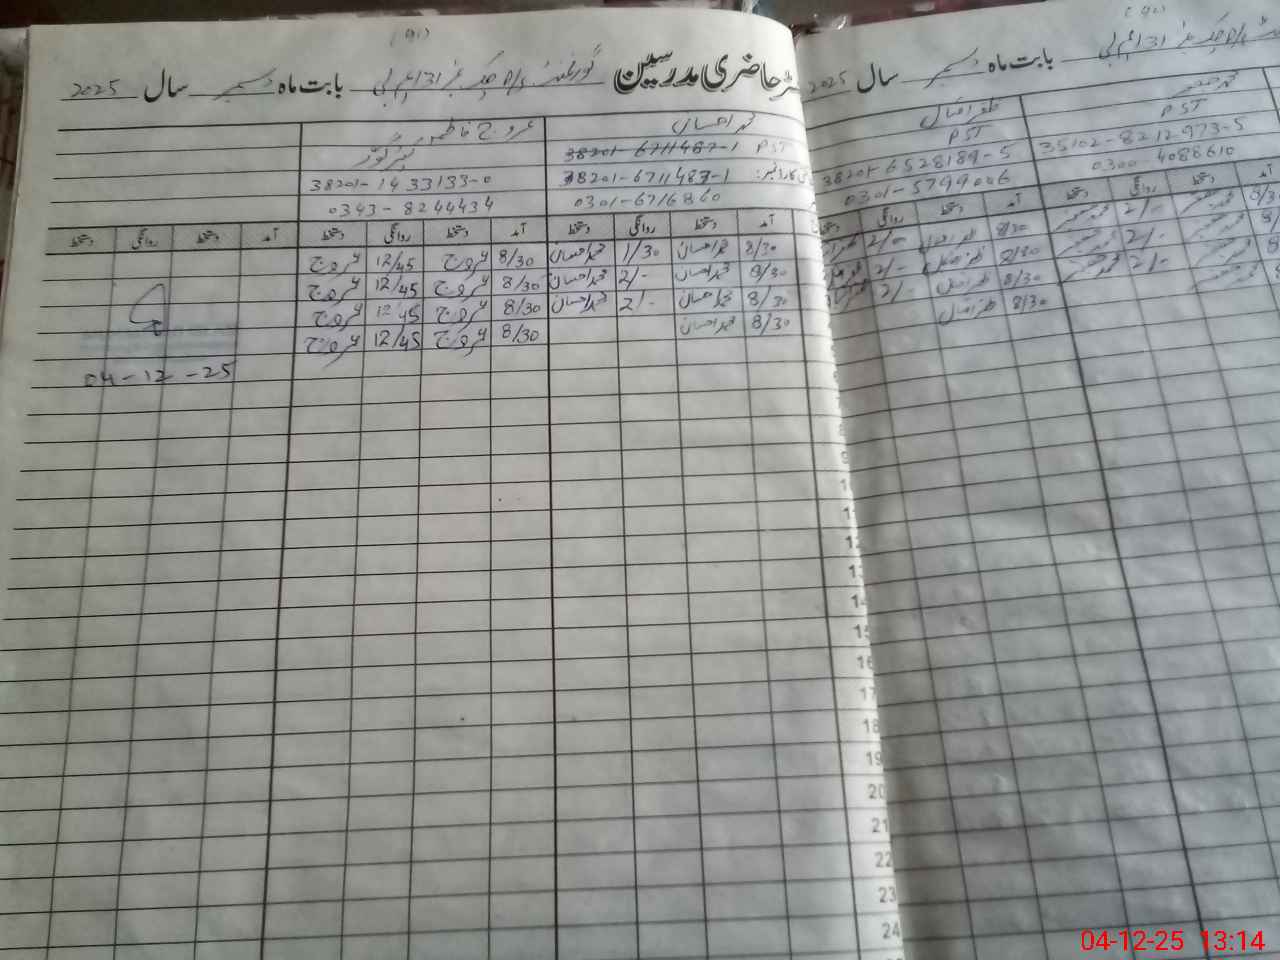 رجسٹر حاضری مدرسین گورنمنٹ پرائمری سکول چک نمبر 131 ایم بی بابت ماہ دسمبر سال 2025
محمد احسان
عروج فاطمہ
PST 38201-6711487-1
38201-6711487-1
38201-1433133-0
0301-6716860
0343-8244434
آمد دستخط روانگی دستخط آمد دستخط روانگی دستخط آمد دستخط روانگی دستخط
8/30 محمد احسان 1/30 محمد احسان 8/30 عروج 12/45 عروج
8/30 محمد احسان 2/- محمد احسان 8/30 عروج 12/45 عروج
8/30 محمد احسان 2/- محمد احسان 8/30 عروج 12/45 عروج
8/30 محمد احسان 8/30 عروج 12/45 عروج
04-12-25
بابت ماہ دسمبر سال 2025
ظفر اقبال
PST
PST
35102-8212973-5
38201-6528189-5
0300-4088610
0301-5799006
آمد دستخط روانگی دستخط آمد دستخط روانگی
8/30 2/- 8/30 ظفر اقبال 2/-
2/- 8/30 ظفر اقبال 2/-
2/- 8/30 ظفر اقبال 2/-
8/30 ظفر اقبال
14
15
16
17
18
19
20
21
22
23
24
04-12-25 13:14